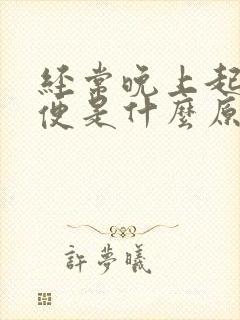 經常晚上起
便是什麼原
許夢曦